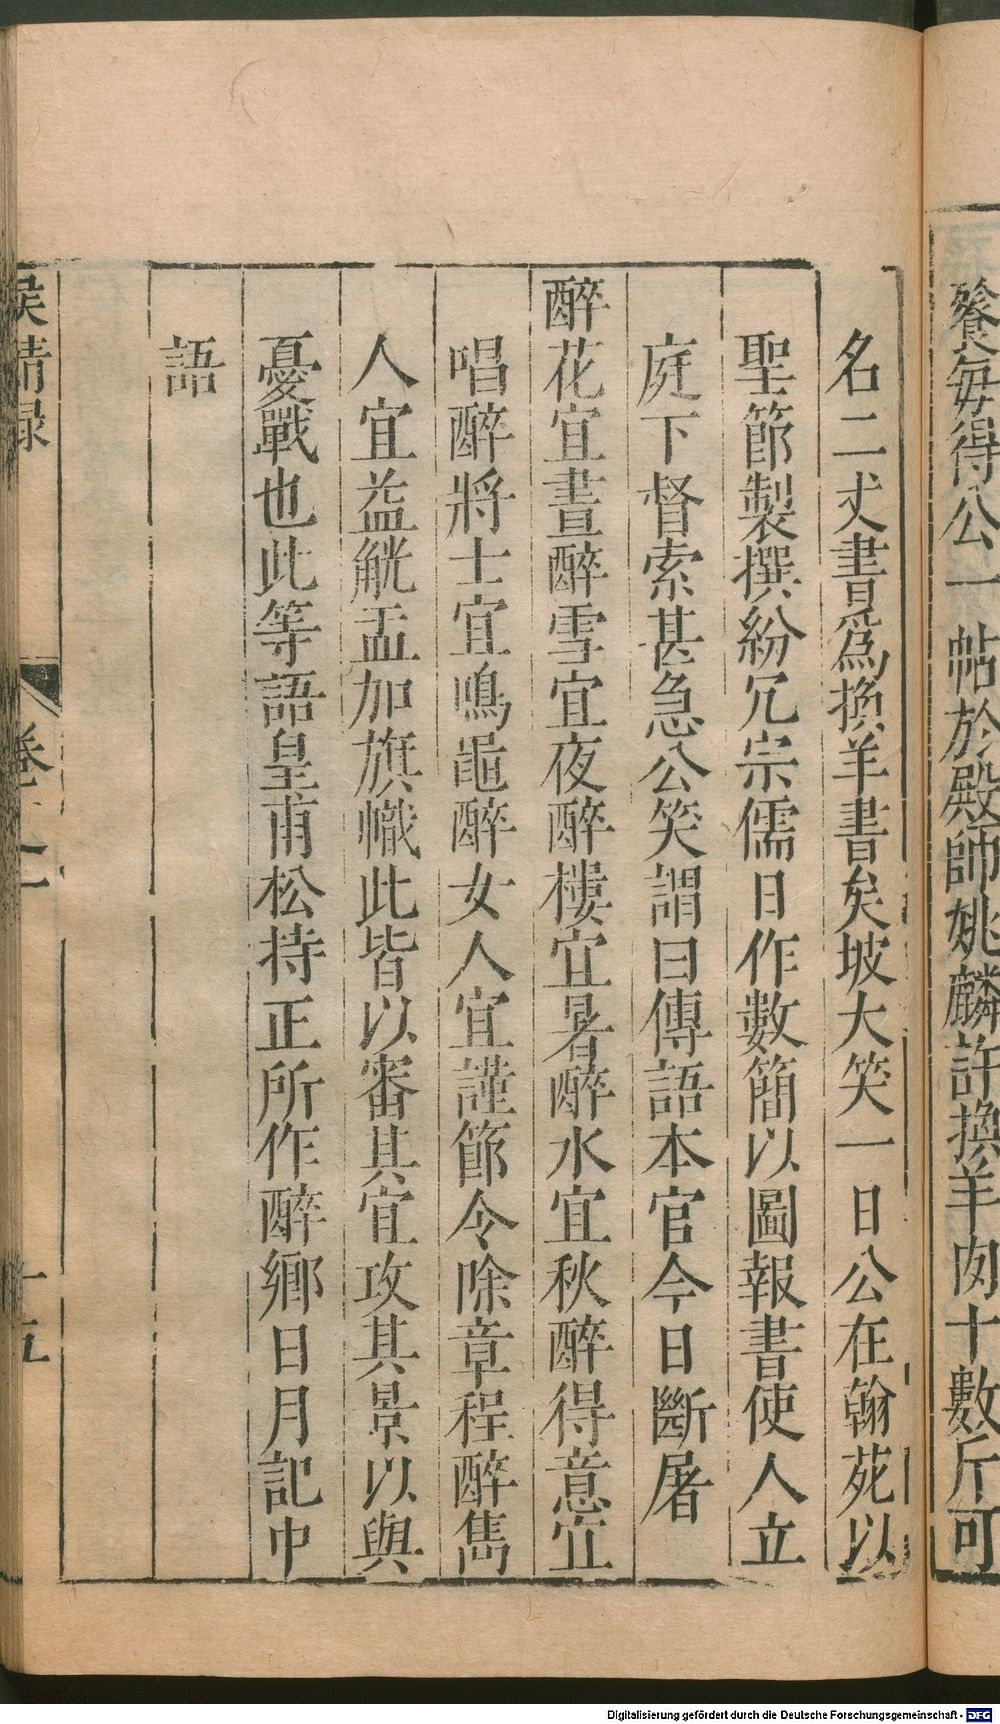 飱每得公一帖於殿師姚麟許換羊肉十數斤可
名二丈書爲換羊書矣坡大笑一日公在翰苑以
聖節製撰紛冗宗儒日作數簡以圖報書使人立
庭下督索甚急公笑謂曰傳語本官今日斷屠
醉花宜晝醉雪宜夜醉樓宜暑醉水宜秋醉得意宜
唱醉將士宜鳴鼉醉女人宜謹節令除章程醉雋
人宜益觥盂加旗幟此皆以審其宜攻其景以與
憂戰也此等語皇甫松持正所作醉鄉日月記中
語
侯鯖録
卷之
十五
Digitalisierung gefördert durch die Deutsche Forschungsgemeinschaft - DFG